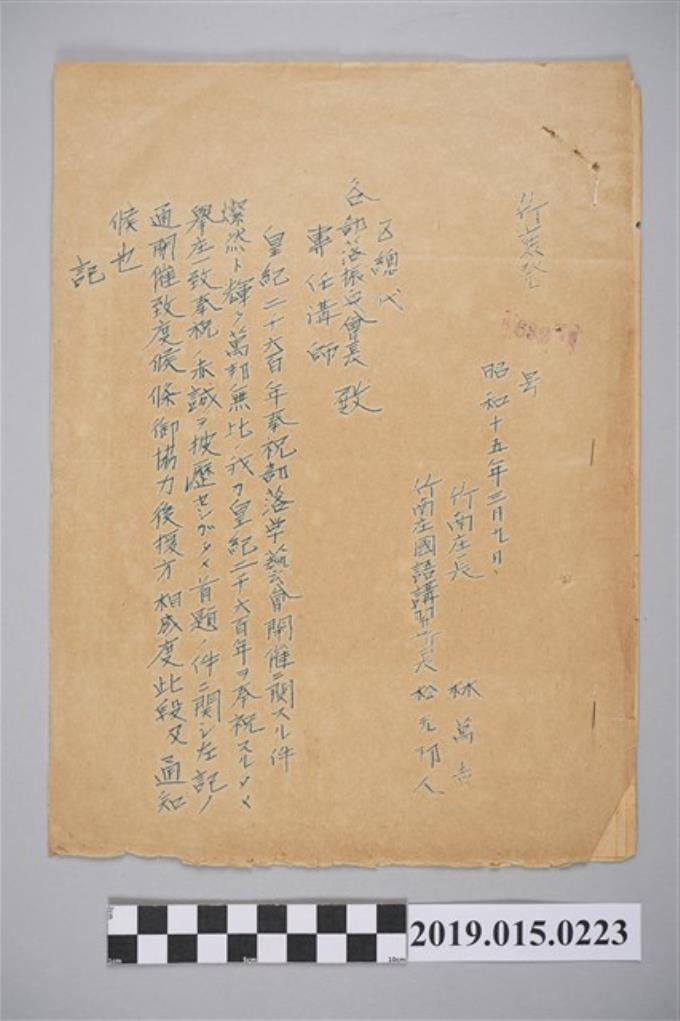 竹庄発
號
昭和十五年三月九日、
竹南庄長 林 萬吉
竹南庄國語講習所長 松元 人
区總代
各部落振興會長 致
專任講師
皇紀二千六百年奉祝部落学藝會開催ニ関スル件
燦然ト輝ク萬邦無比ノ我ガ皇紀二千六百年ヲ奉祝スルタメ
擧庄一致奉祝ノ赤誠ヲ披歴センガタメ首題ノ件ニ関シ左記ノ
通開催致度候條御協力後援方相成度此段及通知
候也
記
2019.015.0223
0cm 5cm 10cm